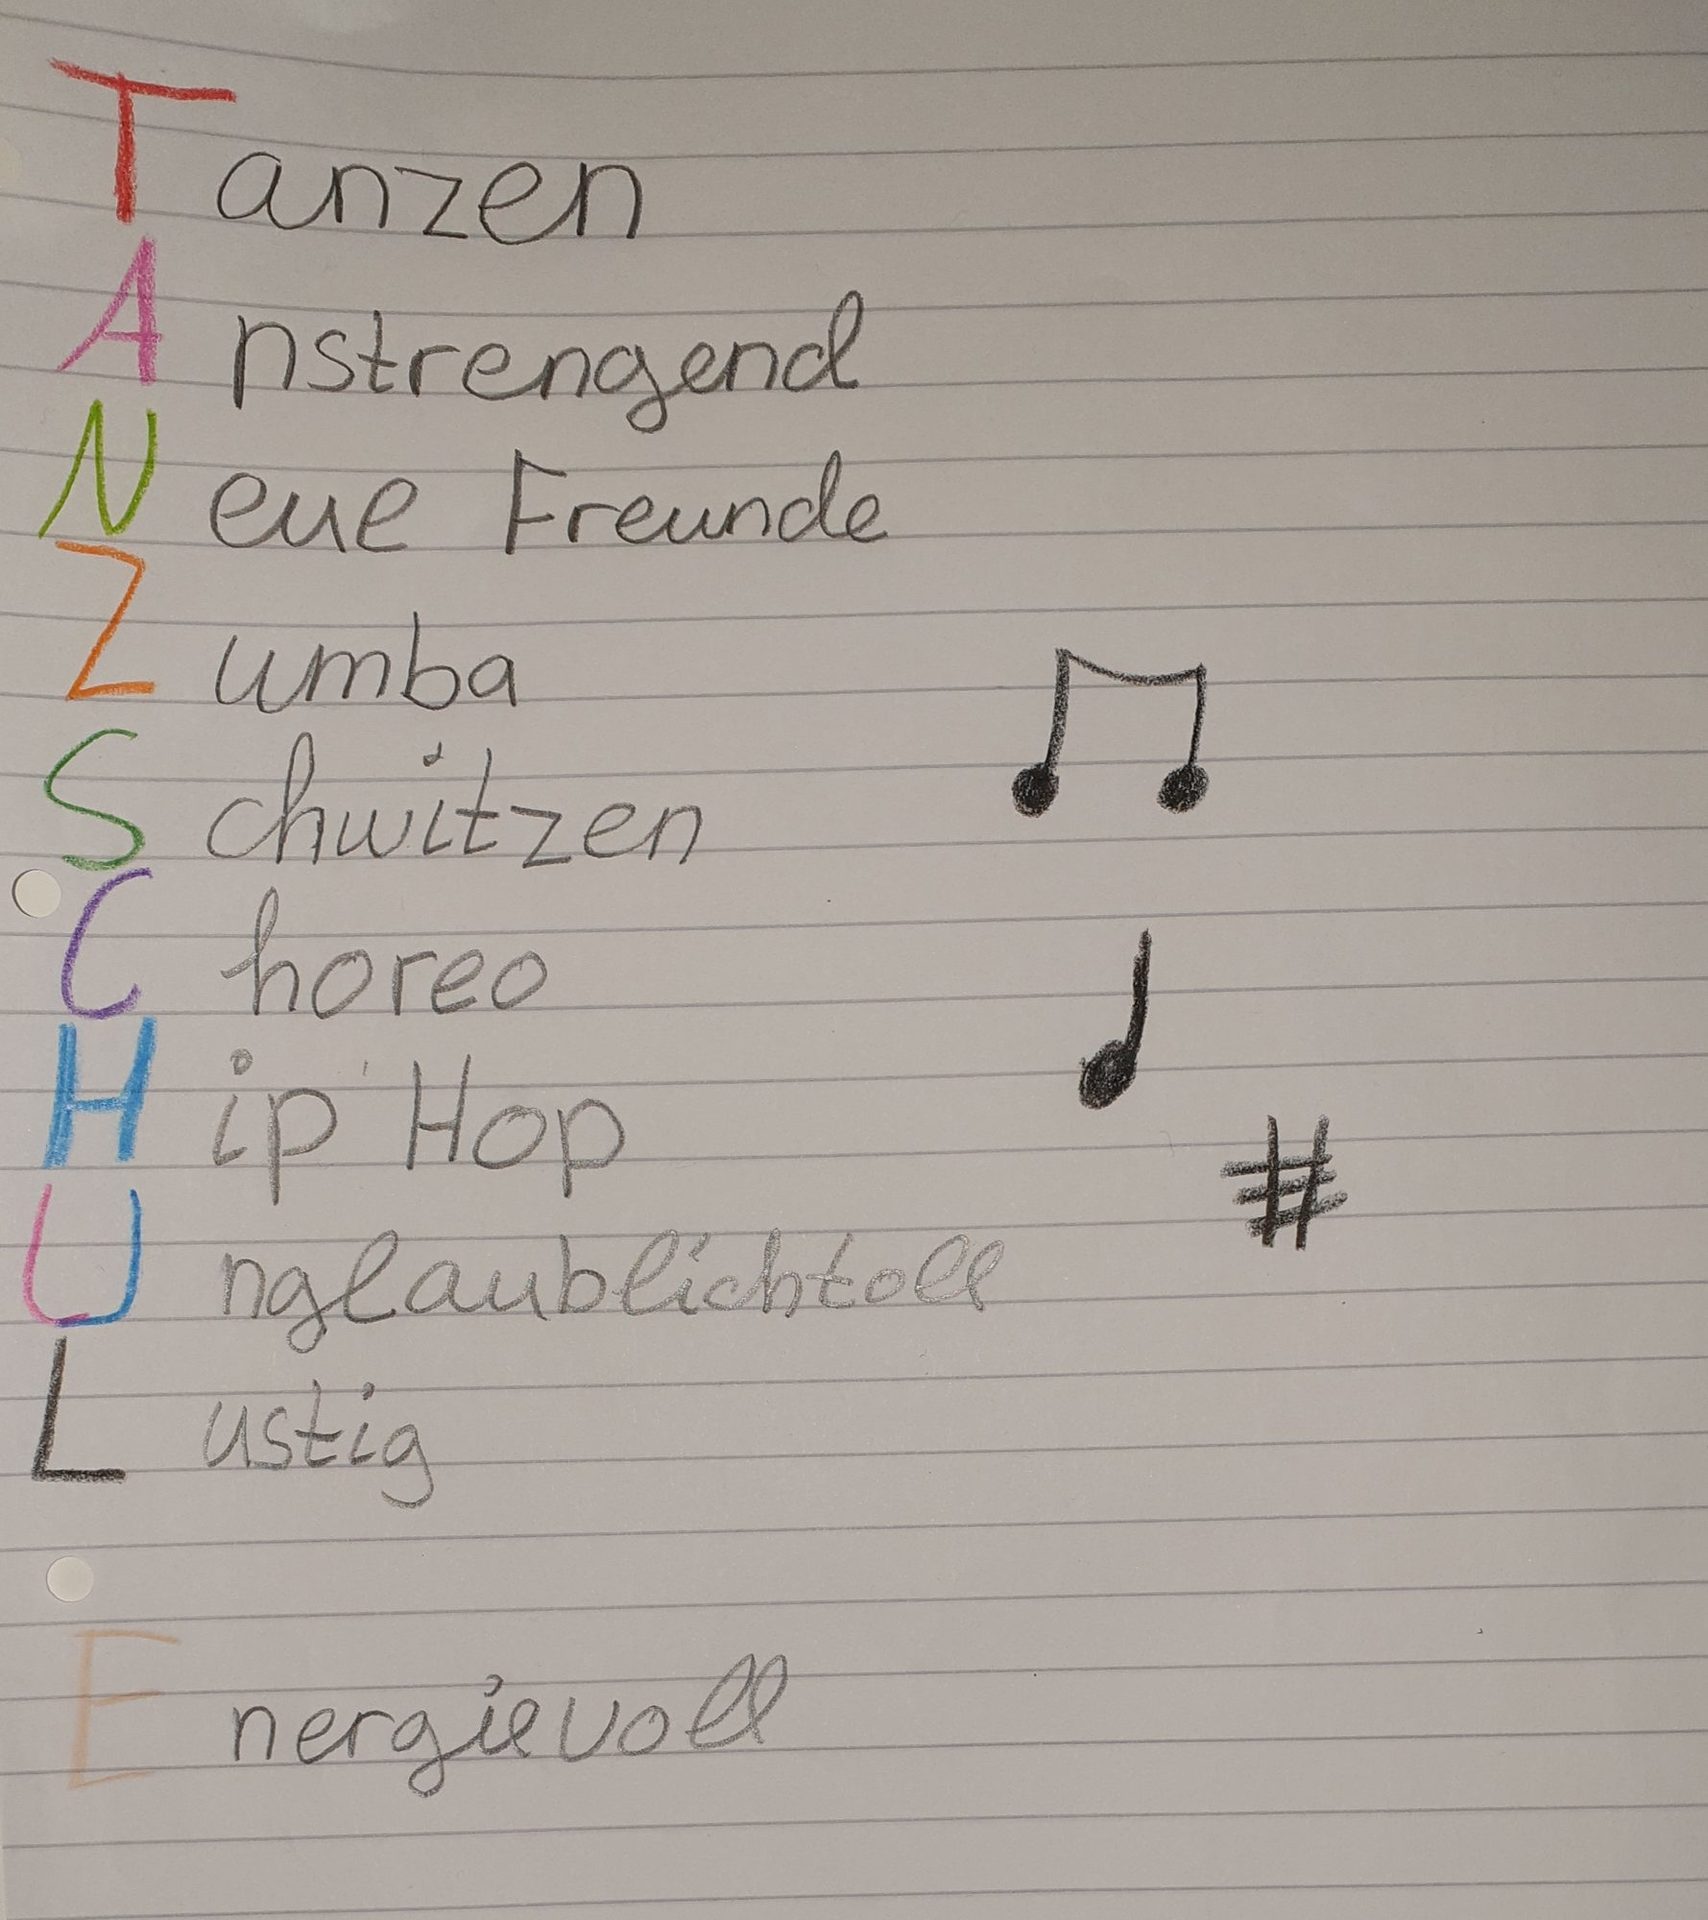 Tanzen
Anstrengend
Neue Freunde
Zumba
Schwitzen
Choreo
Hip Hop
Unglaublichtoll
Lustig
Energievoll